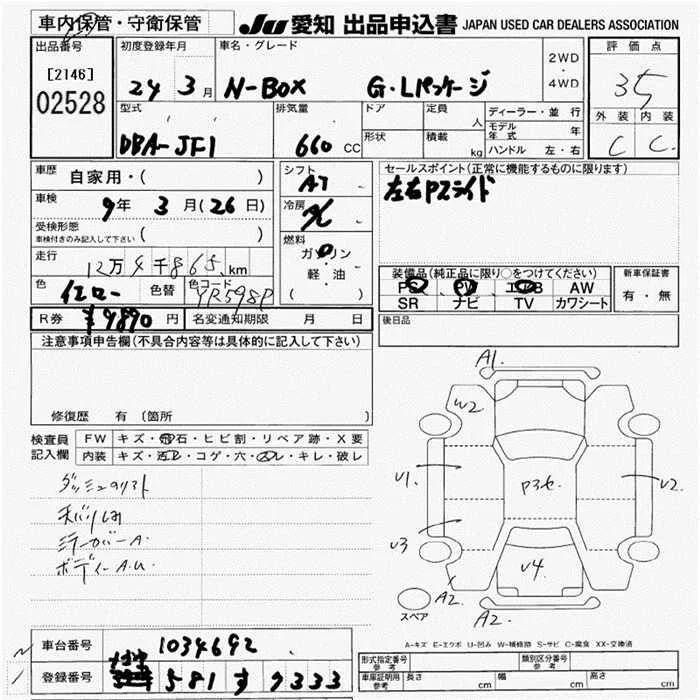 車内保管・守衛保管
JU 愛知 出品申込書 JAPAN USED CAR DEALERS ASSOCIATION
出品番号
[2146]
02528
初度登録年月
24 3月
車名・グレード
N-BOX G・Lパッケージ
2WD
・
4WD
評価点
35
外装 内装
C C
型式
DBA-JF1
排気量
660 CC
ドア
形状
定員 人
積載 kg
ディーラー・並行
モデル年式 年
ハンドル 左・右
車歴
自家用・( )
車検
9年 3月(26日)
受検形態
車検付きのみ記入して下さい ( )
走行
12万4千865km
色
イエロー
色替
色コード
YR598P
シフト
AT
冷房
燃料
ガソリン
・
軽油
( )
セールスポイント(正常に機能するものに限ります)
左右Pスライド
装備品(純正品に限り○をつけてください)
PS PW エアB AW
SR ナビ TV カワシート
新車保証書
有・無
R券 ¥9890円 名変通知期限 月 日
後日品
注意事項申告欄(不具合内容等は具体的に記入して下さい)
修復歴 有 (箇所
検査員
記入欄
FW キズ・飛石・ヒビ割・リペア跡・X要
内装 キズ・汚レ・コゲ・穴・スレ・キレ・破レ
ミラーカバーA
ボディーA.U
A1
W2
U1
P3セ
U2
U3
U4
A2
A2
スペア
A-キズ E-エクボ U-凹み W-補修跡 S-サビ C-腐食 XX-交換済
車台番号 1034692
登録番号 581 す 9333
形式指定番号
参考
類別区分番号
参考
車庫証明用
参考
長さ cm 幅 cm 高さ cm